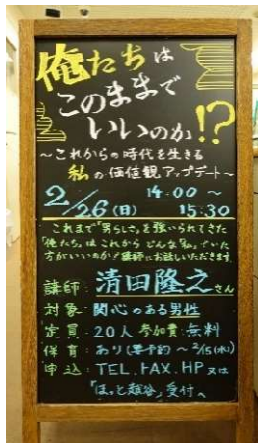 俺たちは
このままで
いいのか!?
～これからの時代を生きる
私の価値観アップデート～
2/26(日) 14:00～
15:30
これまで"男らしさ"を強いられてきた
「俺たち」は これから どんな「私」でいた
方がいいのか?講師にお話しいただきます。
講師:清田隆之さん
対象:関心のある男性
定員:20人 参加費:無料
保育:あり(要予約～2/15(水))
申込:TEL.FAX.HP又は
「ほっと越谷」受付へ